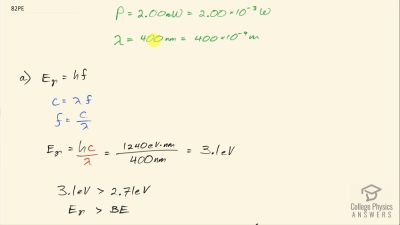 82PE
P = 2.00mW = 2.00 × 10⁻³ W
λ = 400nm = 400 × 10⁻⁹ m
a) Eγ = hf
c = λf
f = c/λ
Eγ = hc/λ = 1240 eV·nm / 400nm = 3.1 eV
3.1 eV > 2.71 eV
Eγ > BE
College Physics
ANSWERS